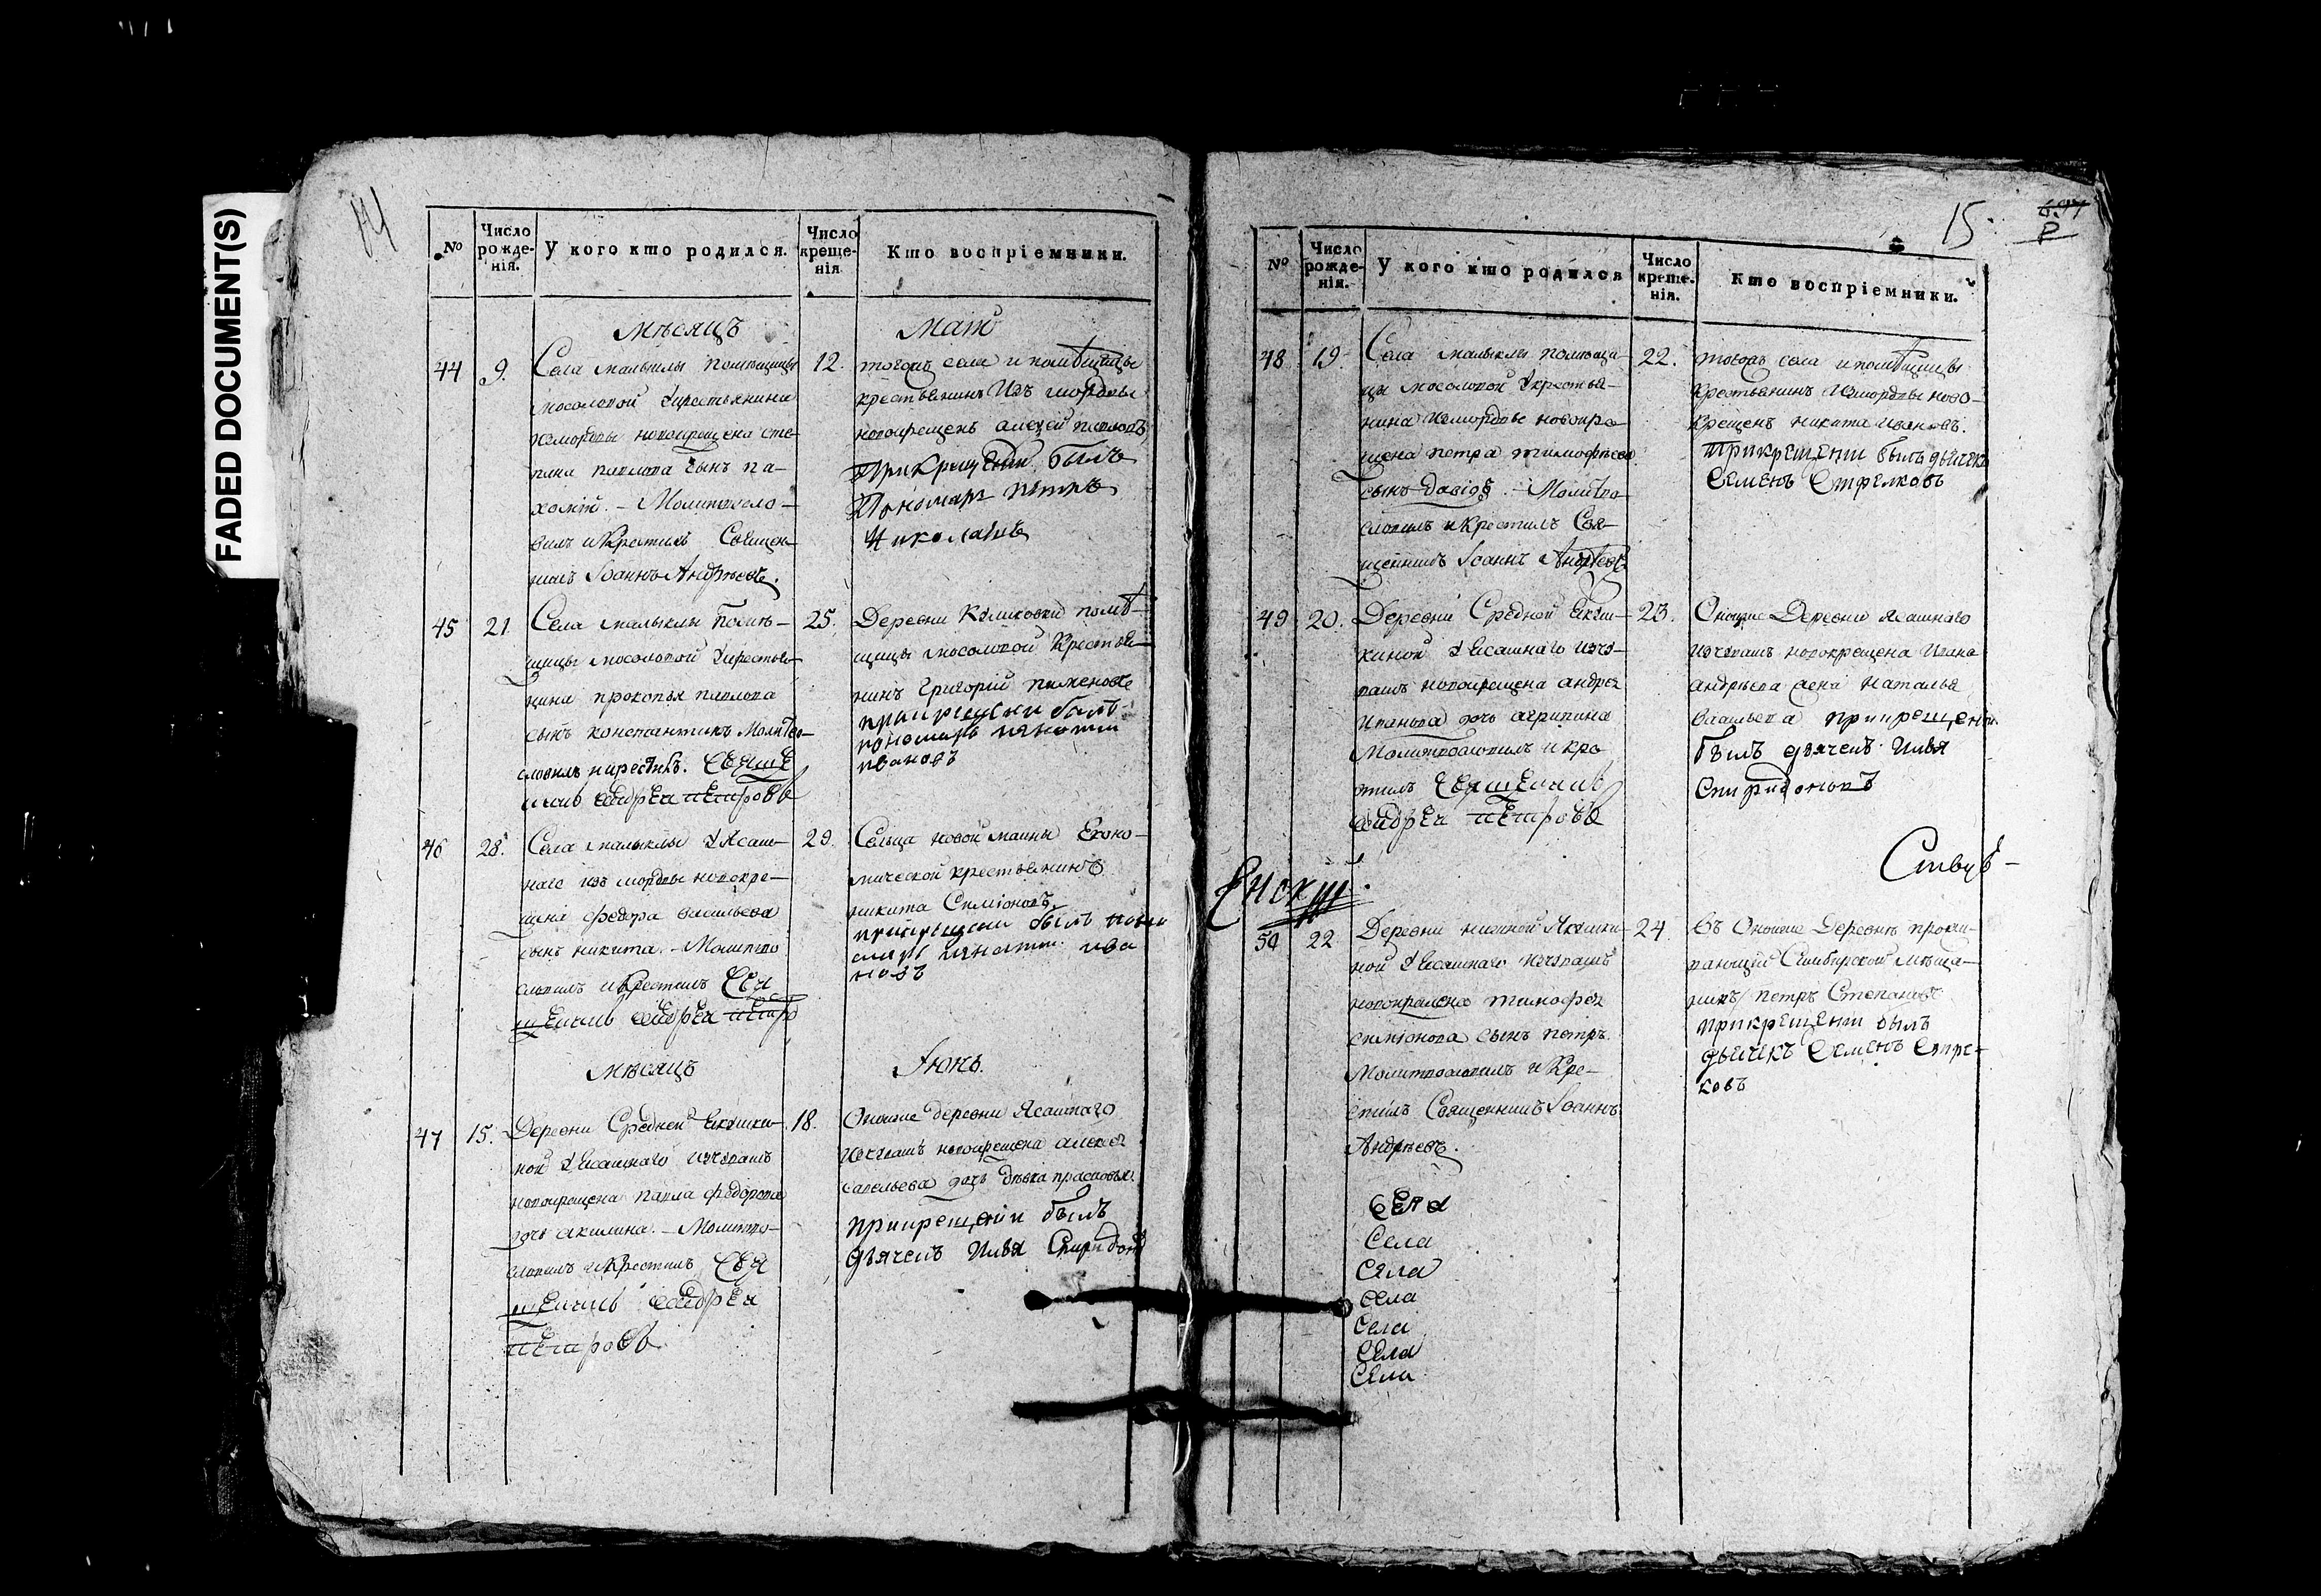 FADED DOCUMENT(S)
14
№
Число рожденія.
У кого кто родился.
Число крещенія
Кто воспріемники.
Мѣсяцъ
Маій
44
9.
Села малыклы помѣщицы
мосоловой у крестьянина
измордвы новокрещена сте-
пана павлова сынъ па-
хомій. – Молитвосло-
вилъ и Крестилъ Священ-
никъ Іоаннъ Андрѣевъ.
12.
тогожъ села и помѣщицы
крестьянинъ Изъ мордвы
новокрещенъ алеѯей павловъ
При Крещении былъ
Пономарь петръ
Николаевъ
45
21
Села малыклы Помѣ-
щицы мосоловой у крестья-
нина прокопья павлова
сынъ констянтинъ Молитво-
словилъ и крестилъ. Священ
никъ андрей петровъ
25.
Деревни Куликовки помѣ-
щицы мосоловой Крестья-
нинъ Григорій пименовъ
прикрещени былъ
пономарь
ивановъ
46
28.
Села малыклы у Ясаш-
наго изъ мордвы новокре-
щена федора васильева
сынъ никита. – Молитво
словилъ и Крестилъ Свя
щенникъ андрей петро
29.
Сельца новой майны Еконо-
мической крестьянинъ
никита Симіоновъ.
прикрещени былъ поно
марь ива
новъ
Мѣсяцъ
Іюнь.
47
15.
Деревни Средней Якушки-
ной у Ясашнаго изчувашъ
новокрещена павла федорова
дочь акилина. – Молитво-
словилъ и Крестилъ Свя
щенникъ андрей
петровъ
18.
Оноиже деревни Ясашнаго
Изчувашъ новокрещена алексея
савельева дочь дѣвка прасковья.
прикрещении былъ
дьячекъ Илья Спиридон
15.
697
№
Число рожденія.
У кого кто родился
Число крещенія.
Кто воспріемники.
48
19.
Села малыклы помѣщи-
цы мосоловой у крестья-
нина Измордвы новокре-
щена петра тимофѣева
сынъ Давідъ. – Молитво
словилъ и Крестилъ Свя-
щенникъ Іоаннъ Андрѣевъ
22.
тогожъ села и помѣщицы
Крестьянинъ Измордвы ново-
крещенъ никита ивановъ.
Прикрещени былъ дьячекъ
Семенъ Стрелковъ
49
20.
Деревни Средней Якуш-
киной у Ясашнаго изчу-
вашъ новокрещена андрея
Иванова дочь агрипина
Молитвословилъ и кре
стилъ Священникъ
андрей петровъ
23.
Оноиже Деревни Ясашнаго
изчувашъ новокрещена Ивана
андрѣева жена наталья
васильева прикрещении
былъ дьячекъ Илья
Спиридоновъ
50
22
Деревни нижней Якушки-
ной у Ясашнаго изчувашъ
новокрещена тимофея
симіонова сынъ петръ.
Молитвословилъ и Кре-
стилъ Священникъ Іоаннъ
Андрѣевъ.
24.
Въ Оноиже Деревнѣ прожи-
вающей Симбирской мѣща-
нинъ петръ Степановъ
прикрещени былъ
дьячекъ Семенъ Стрел-
ковъ
Села
Села
Села
Села
Села
Села
Села